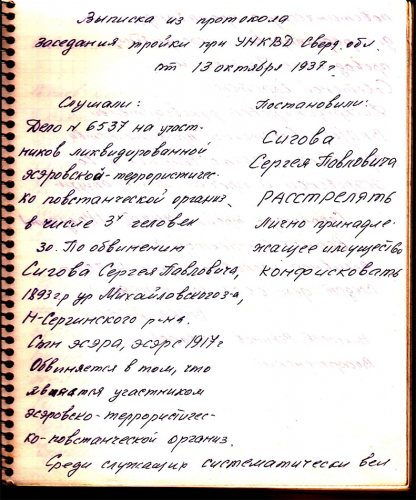 Выписка из протокола
заседания тройки при УНКВД Сверд. обл.
от 13 октября 1937г.
Слушали:
Дело N 6537 на участ-
ников ликвидированной
эсэровской-террористичес-
ко повстанческой организ.
в числе 3х человек
30. По обвинению
Сигова Сергея Павловича,
1893 г р ур Михайловского з-а,
Н-Сергинского р-на.
Сын эсэра, эсэр с 1917 г
Обвиняется в том, что
является участником
эсэровско-террористичес-
ко-повстанческой организ.
Среди служащих систематически вел
Постановили:
Сигова
Сергея Павловича
РАССТРЕЛЯТЬ
Лично принадле-
жащее имущество
конфисковать